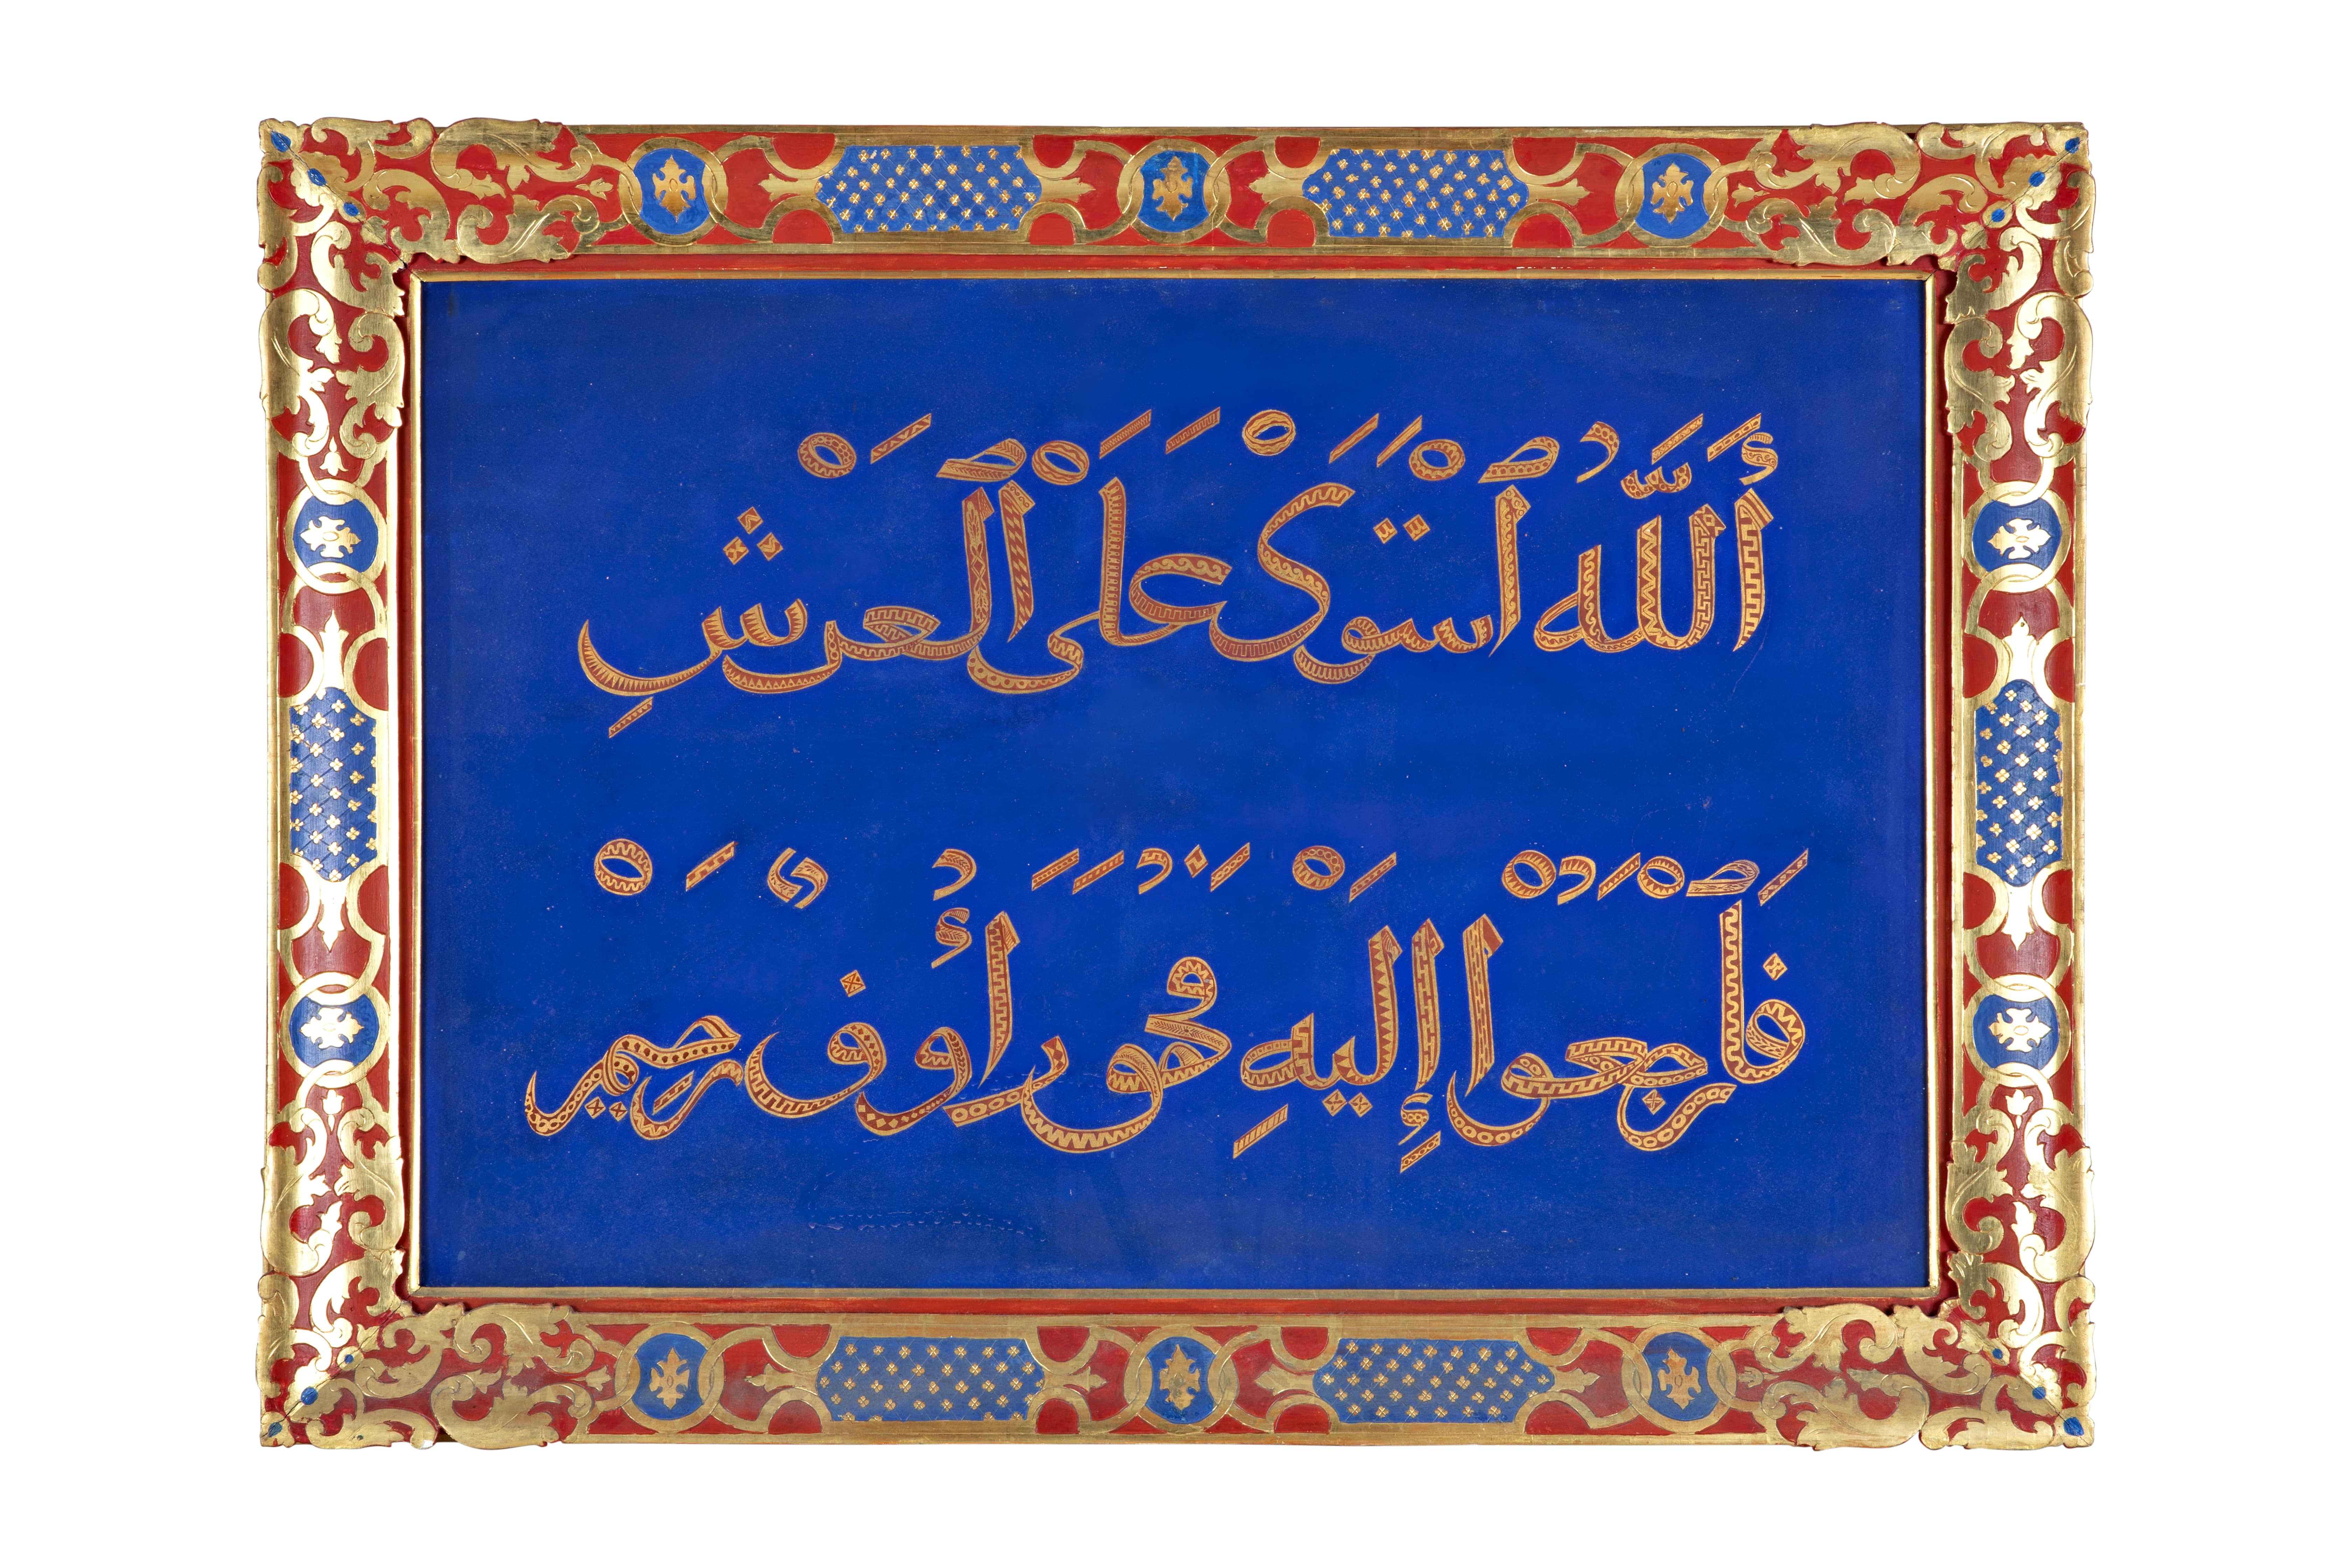 أَللَّهُ ٱسْتَوَىْ عَلَىْ ٱلعَرْشِ
فَٱرْجَعُوْا إِلَيْهِ فَهُوَ رَأُوفٌ رَحِيمْ